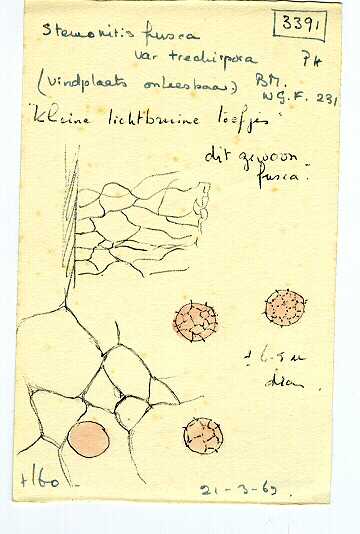 3391
Stemonitis fusca
var trechispora PH
(vindplaats onleesbaar) BM.
NGF. 231
"kleine lichtbruine toefjes"
dit gewoon
fusca.
diam.
±160
21-3-69.